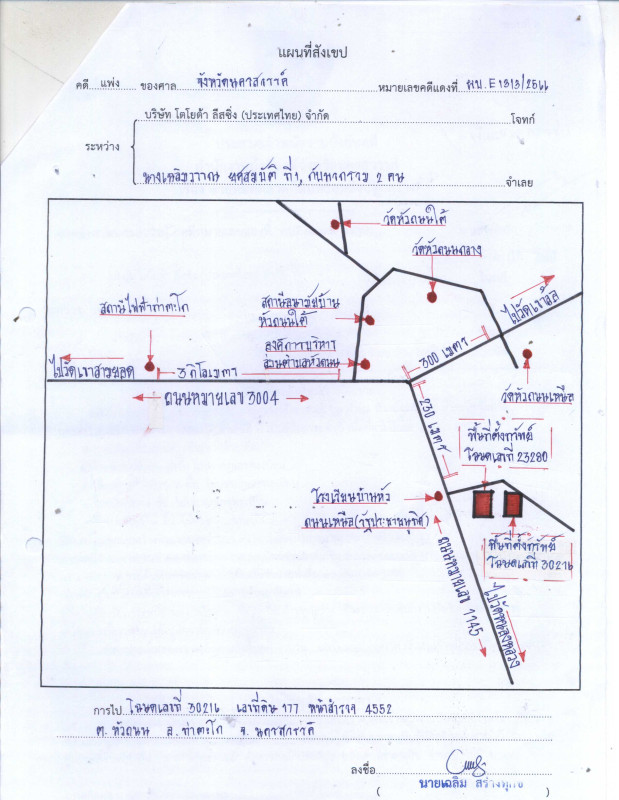 แผนที่สังเขป
คดี แพ่ง ของศาล จังหวัดนครสวรรค์ หมายเลขคดีแดงที่ ผบ.E1313/2566
บริษัท โตโยต้า ลีสซิ่ง (ประเทศไทย) จำกัด โจทก์
ระหว่าง
ที่1, กับพวกรวม 2 คน จำเลย
วัดหัวถนนใต้
วัดหัวถนนกลาง
สถานีไฟฟ้าท่าตะโก
สถานีอนามัยบ้าน
หัวถนนใต้
องค์การบริหาร
ส่วนตำบลหัวถนน
ไปวัดเขาล้อ
300 เมตร
ไปวัดเขาสายลอด
3 กิโลเมตร
วัดหัวถนนเหนือ
ถนนหมายเลข 3004
230 เมตร
พื้นที่ตั้งทรัพย์
โฉนดเลขที่ 23280
โรงเรียนบ้านหัว
ถนนเหนือ(รัฐประชานุทิศ)
พื้นที่ตั้งทรัพย์
โฉนดเลขที่ 30216
ถนนหมายเลข 1145
ไปวัดหนองหลวง
การไป โฉนดเลขที่ 30216 เลขที่ดิน 177 หน้าสำรวจ 4552
ต. หัวถนน อ. ท่าตะโก จ. นครสวรรค์
ลงชื่อ
( นายเฉลิม